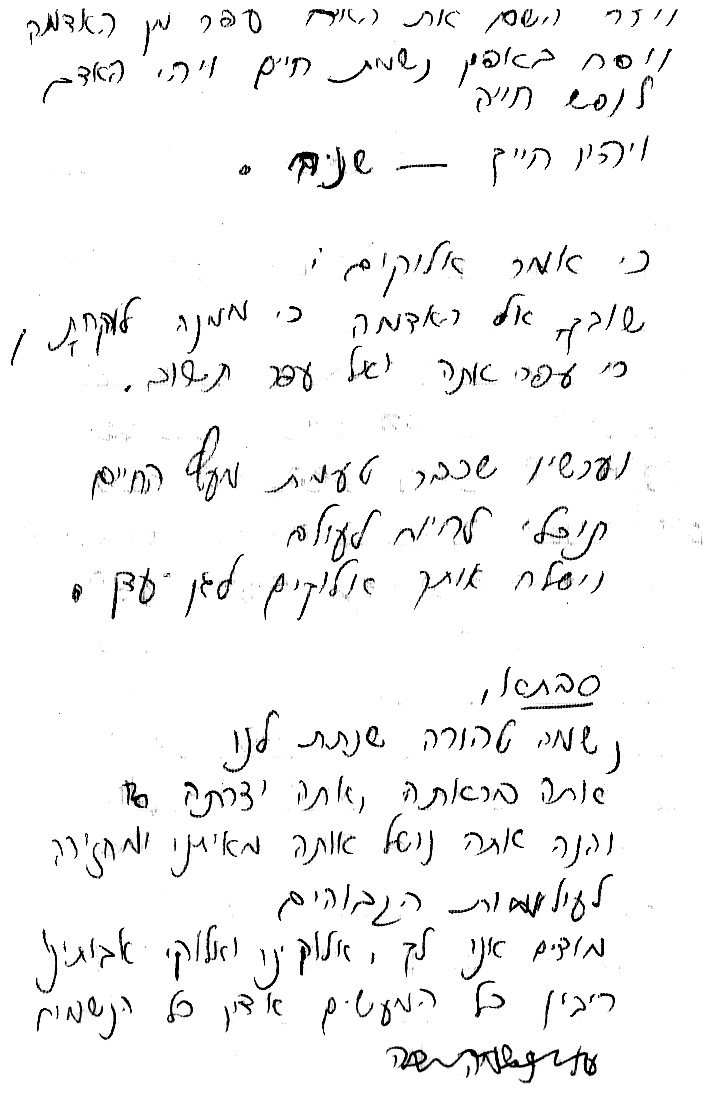 וייצר השם את האדם עפר מן האדמה
וייפח באפיו נשמת חיים ויהי האדם
לנפש חייה
ויהיו חייך — שנים.
כי אמר אלוקים:
שובך אל האדמה כי ממנה לוקחת,
כי עפר אתה ואל עפר תשוב.
ועכשיו שכבר טעמת מעץ החיים
תוכלי לחיות לעולם
וישלח אותך אלוקים לגן עדן.
סבתא,
נשמה טהורה שנתת לנו
אותה בראתה, אתה יצרתה
והנה אתה נוטל אותה מאיתנו ומחזירה
לעולמות הגבוהים
מודים אנו לך, אלוקינו ואלוקי אבותינו
ריבון כל המעשים אדון כל הנשמות